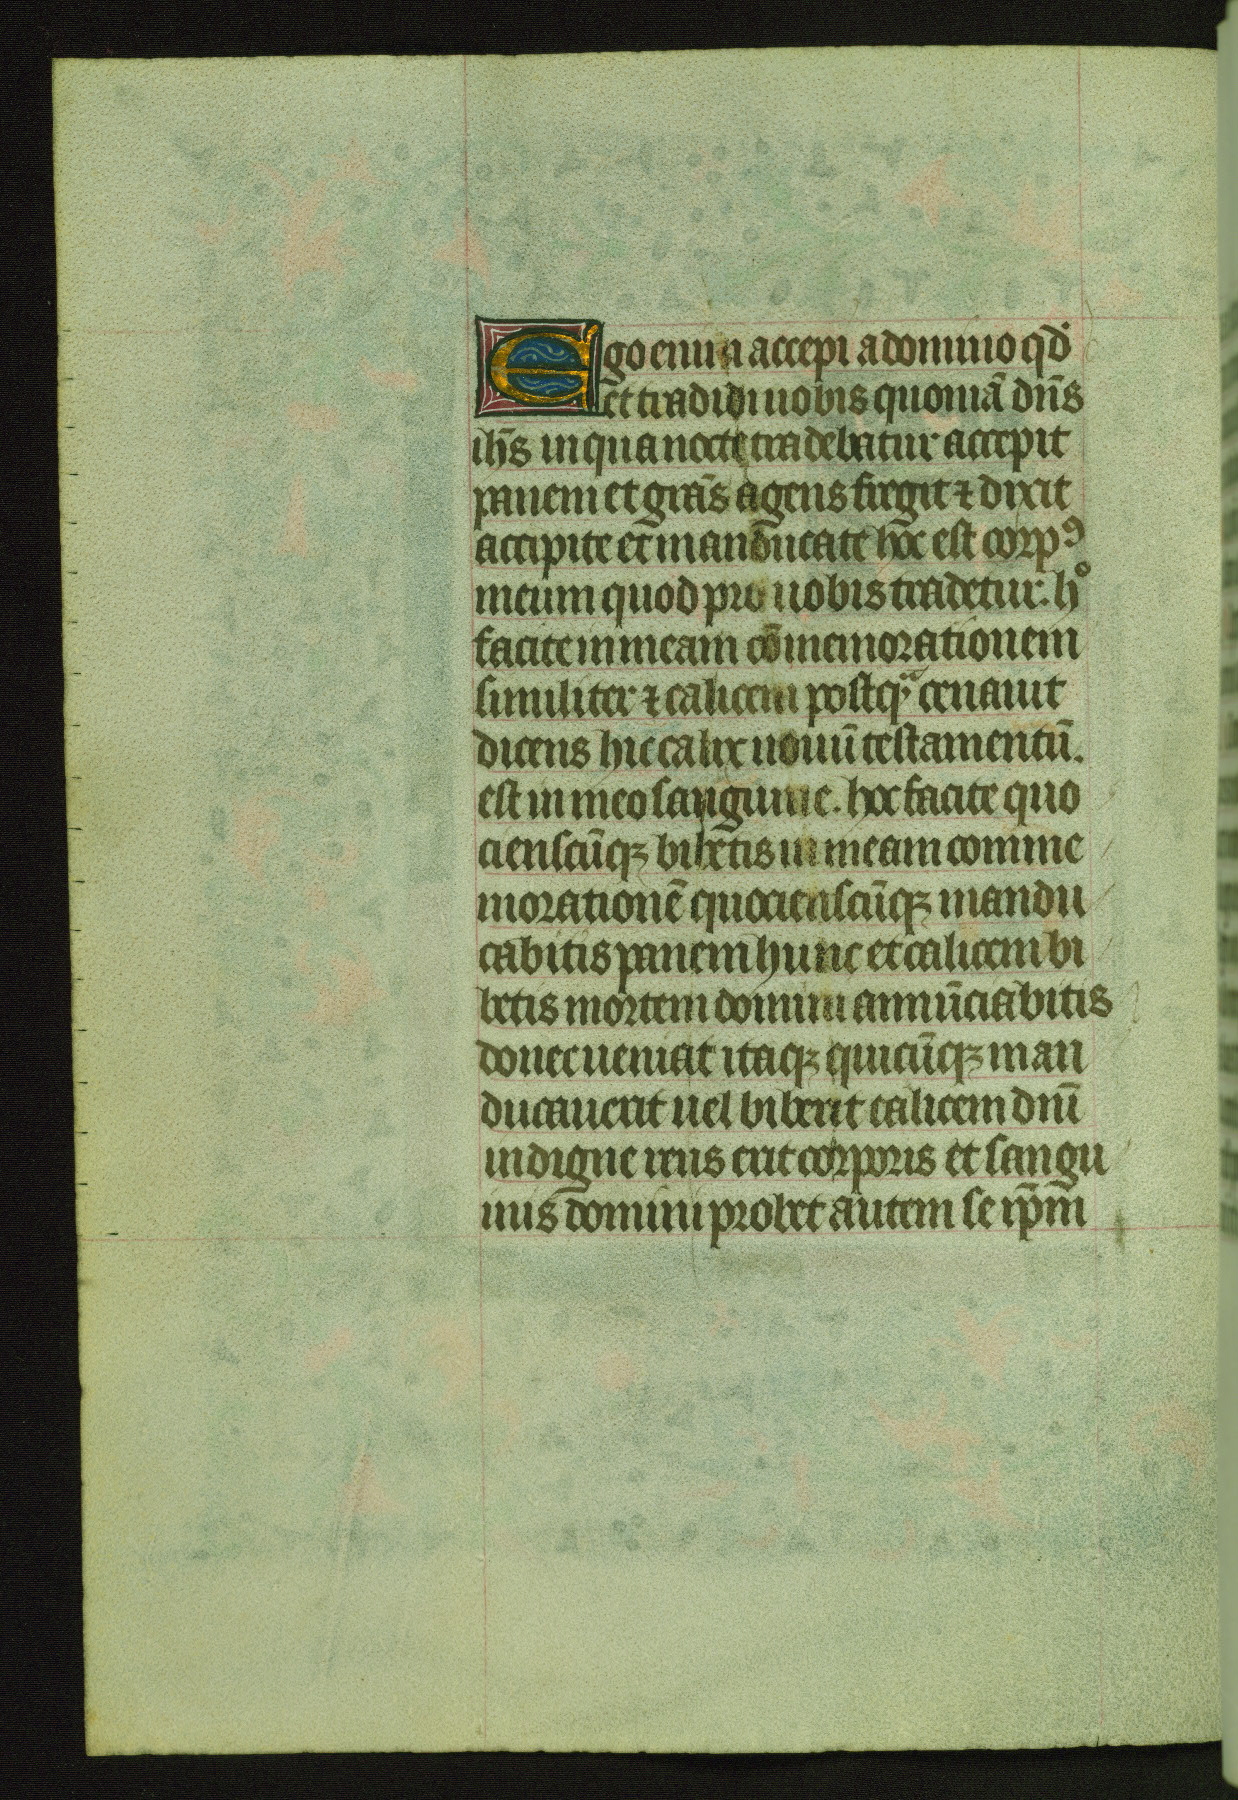 Ego enim accepi a domino qd
et tradidi uobis quoniā dn̄s
ih̄s in qua nocte tradebatur accepit
panem et grās agens fregit ⁊ dixit
accipite et manducate hoc est corpꝯ
meum quod pro uobis tradetur. hͦ
facite in meam cōmemorationem
similiter ⁊ calicem postqᵃ cenauit
dicens hic calix nouū testamentū.
est in meo sanguine. hoc facite quo
cienscūqꝫ bibetis in meam comme
morationē quocienscūqꝫ mandu
cabitis panem hunc et calicem bi
betis mortem domini annūciabitis
donec ueniat itaqꝫ quicūqꝫ man
ducauerit uel biberit calicem dnī
indigne reus erit corporis et sangu
inis domini probet autem se ip̄m